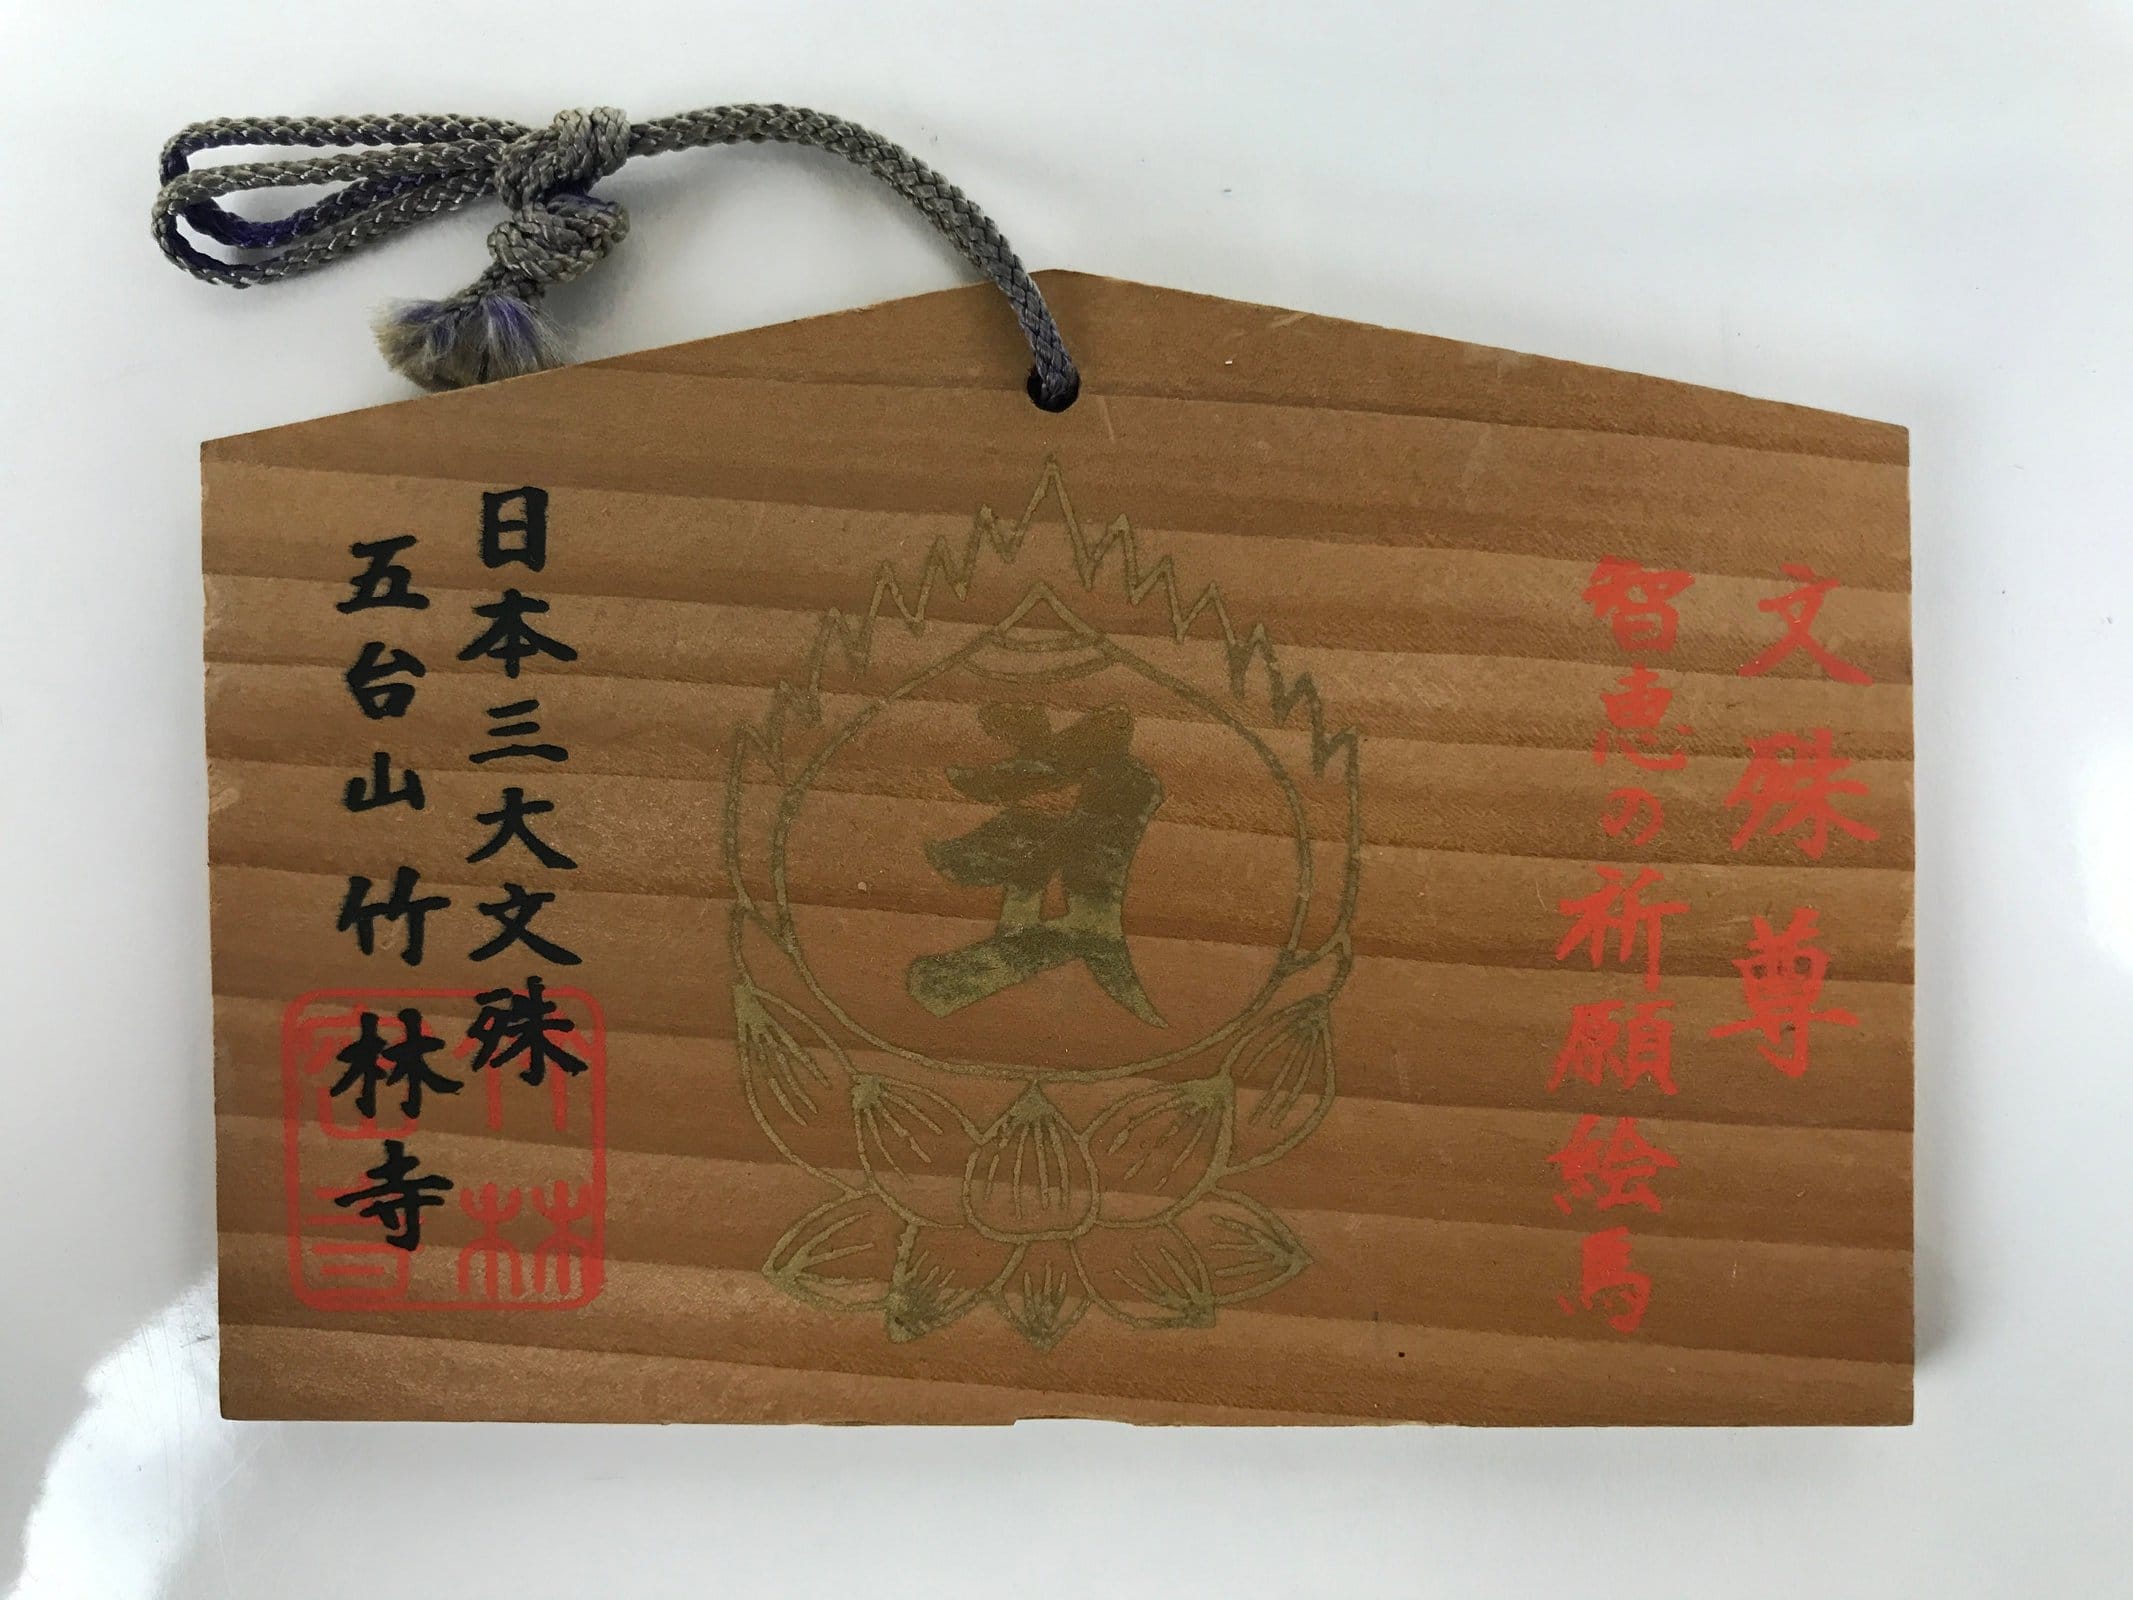 文殊尊
智恵の祈願絵馬
日本三大文殊
五台山竹林寺